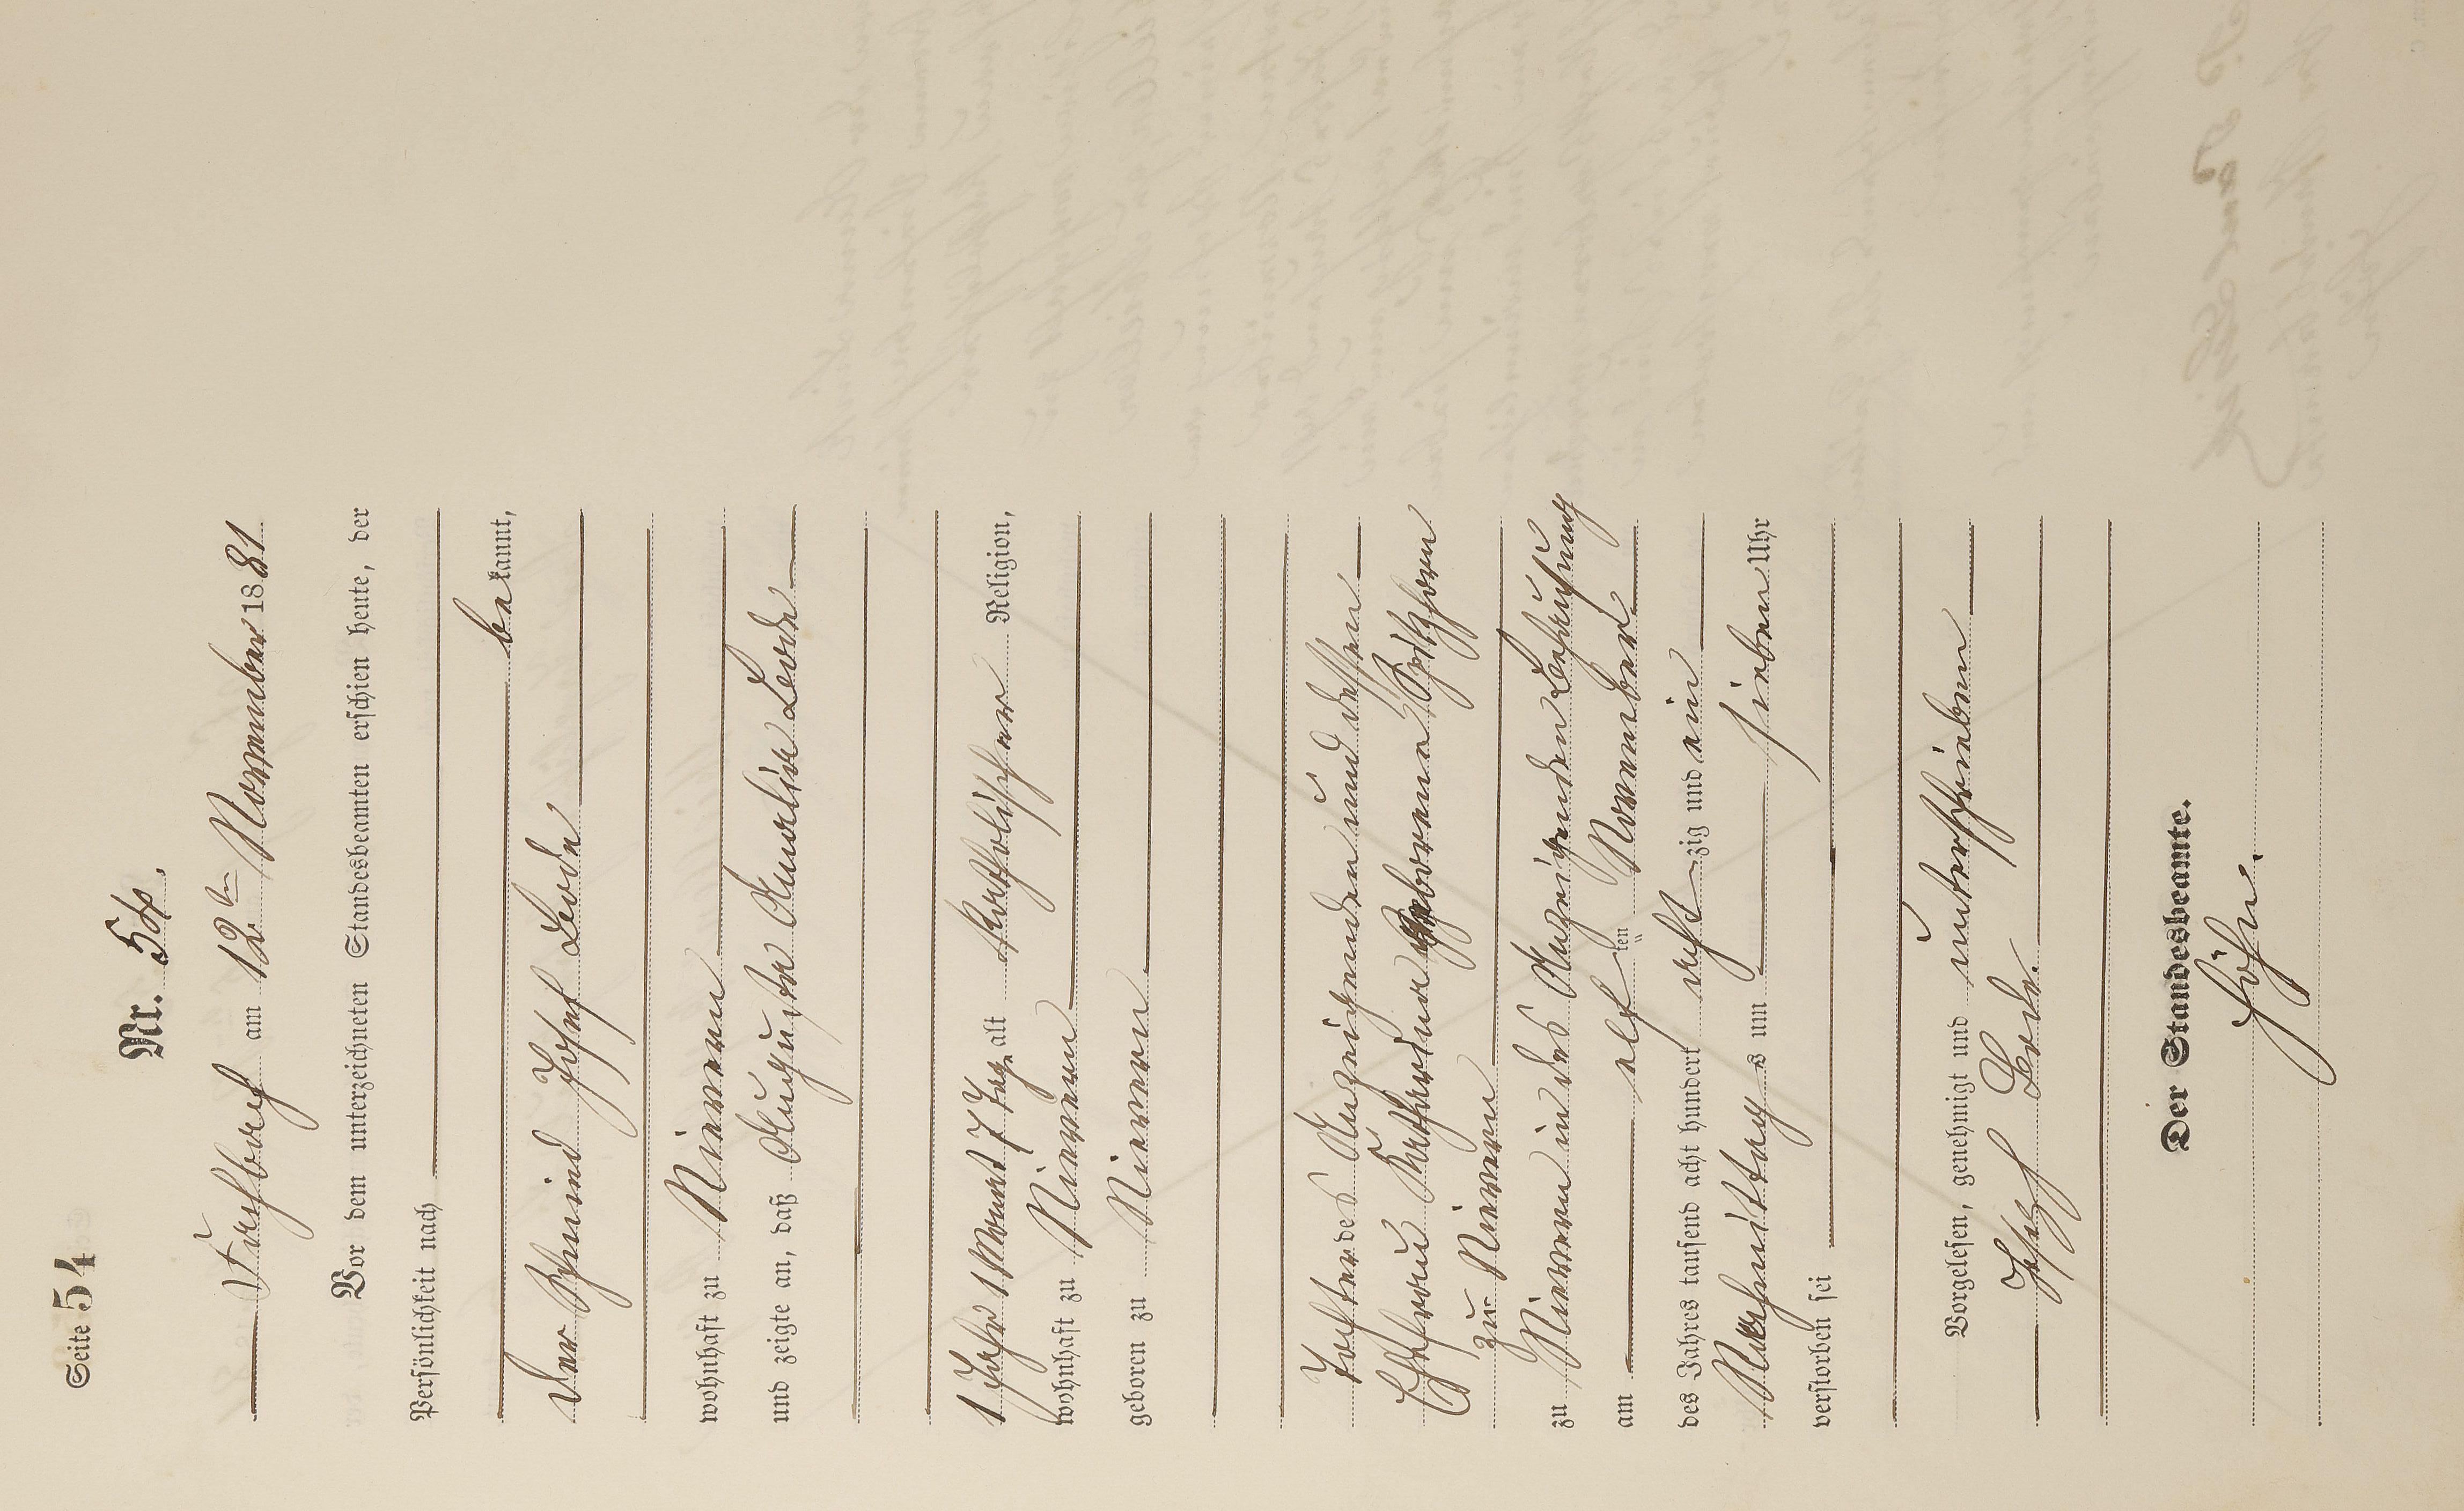 Seite 54
Nr. 54.
Fachbach am 12ten November 1881
Vor dem unterzeichneten Standesbeamten erschien heute, der
Persönlichkeit nach
bekannt,
der Schmied Josef Lode
wohnhaft zu Nievern
und zeigte an, daß Auguste Amalia Lode
1 Jahr 1 Monat 7 Tage alt katholischer Religion,
wohnhaft zu Nievern
geboren zu Nievern
Tochter des Anzeigenden und dessen
Ehefrau Katharina geborene
zu Nievern
zu Nievern in des Anzeigenden Behausung
am elften November
des Jahres tausend acht hundert achtzig und ein
Nachmittags um sieben Uhr
verstorben sei
Vorgelesen, genehmigt und unterschrieben
Josef Lode.
Der Standesbeamte.
Höhn.